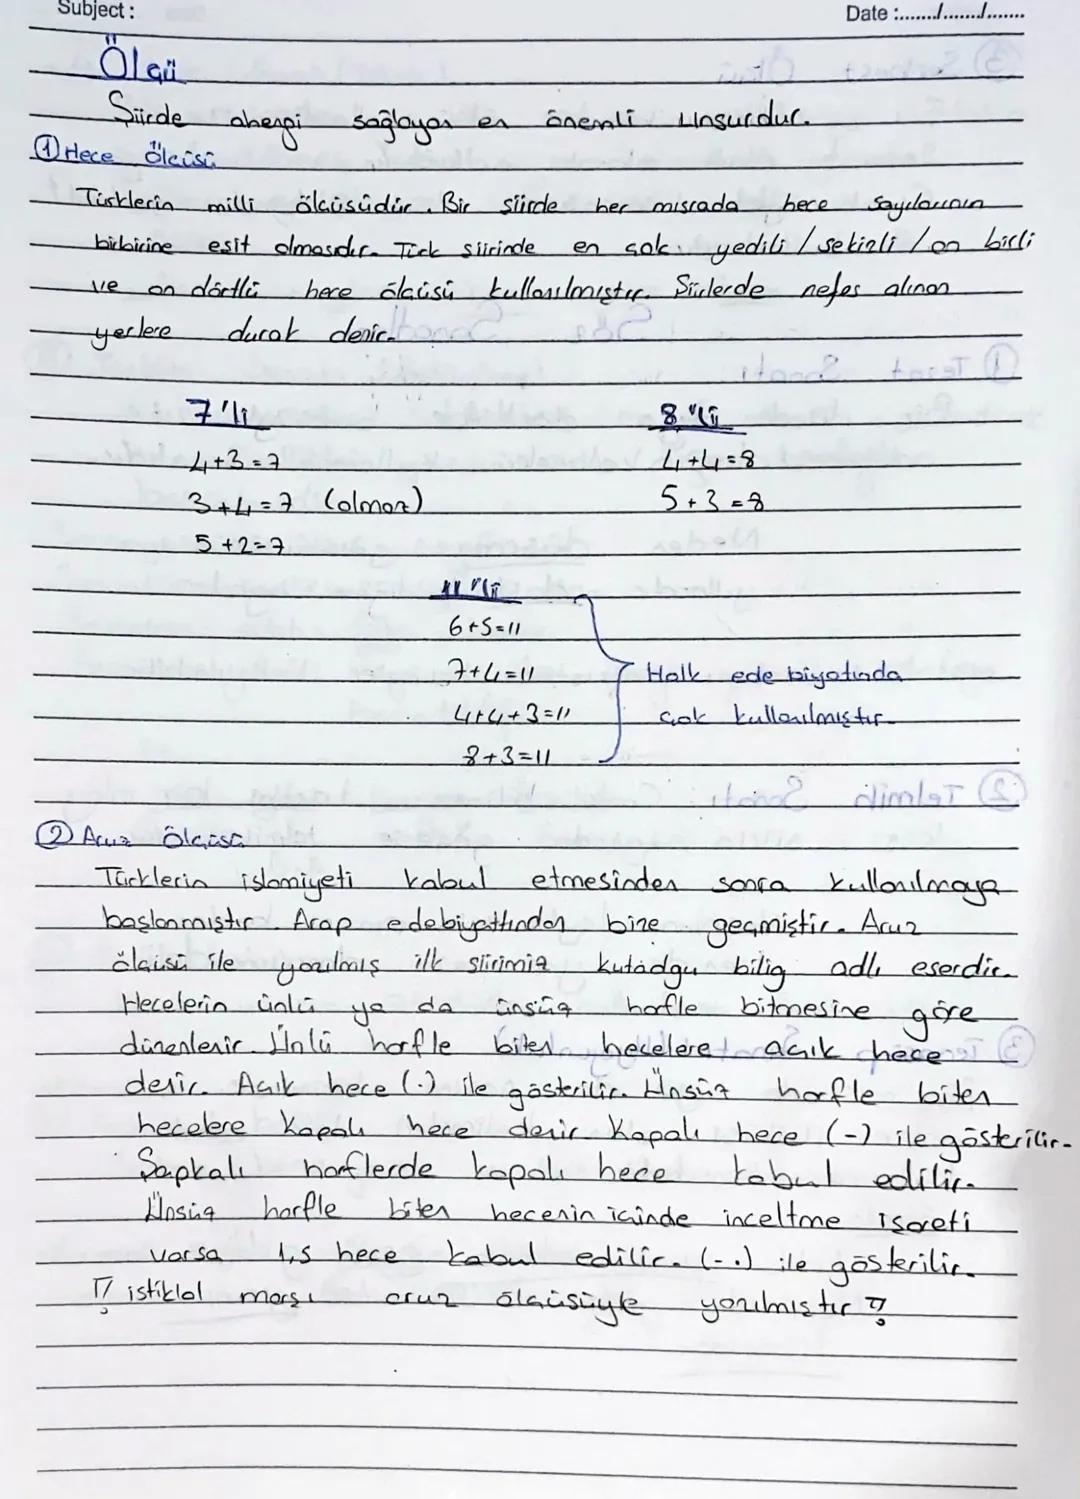 Subject :
Date :......./......./.......
Ölçü
Şiirde ahengi sağlayan en önemli unsurdur.
① Hece Ölçüsü
Türklerin milli ölçüsüdür. Bir şiirde her mısrada hece sayılarının
birbirine eşit olmasıdır. Türk şiirinde en çok yedili / sekizli / on birli
ve on dörtlü hece ölçüsü kullanılmıştır. Şiirlerde nefes alınan
yerlere durak denir.
7'li
8'li
4+3=7
4+4=8
3+4=7 (olmaz)
5+3=8
5+2=7
11'li
6+5=11
7+4=11
Halk edebiyatında
4+4+3=11
çok kullanılmıştır.
8+3=11
② Aruz Ölçüsü
Türklerin islamiyeti kabul etmesinden sonra kullanılmaya
başlanmıştır. Arap edebiyattından bize geçmiştir. Aruz
ölçüsü ile yazılmış ilk şiirimiz kutadgu bilig adlı eserdir.
Hecelerin ünlü ya da ünsüz harfle bitmesine göre
düzenlenir. Ünlü harfle biten hecelere açık hece
denir. Açık hece (.) ile gösterilir. Ünsüz harfle biten
hecelere kapalı hece denir. Kapalı hece (-) ile gösterilir.
Şapkalı harflerde kapalı hece kabul edilir.
Ünsüz harfle biten hecenin içinde inceltme işareti
varsa 1,5 hece kabul edilir. (-.) ile gösterilir.
istiklal marşı aruz ölçüsüyle yazılmıştır